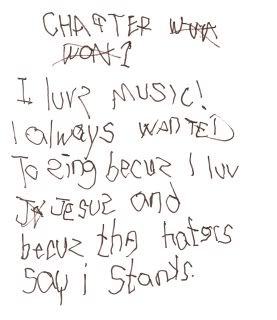 CHAPTER
1
I luvz MUSIC!
I always WANTED
To zing becuz I luv
JESUZ and
becuz tha haters
say i Stands.